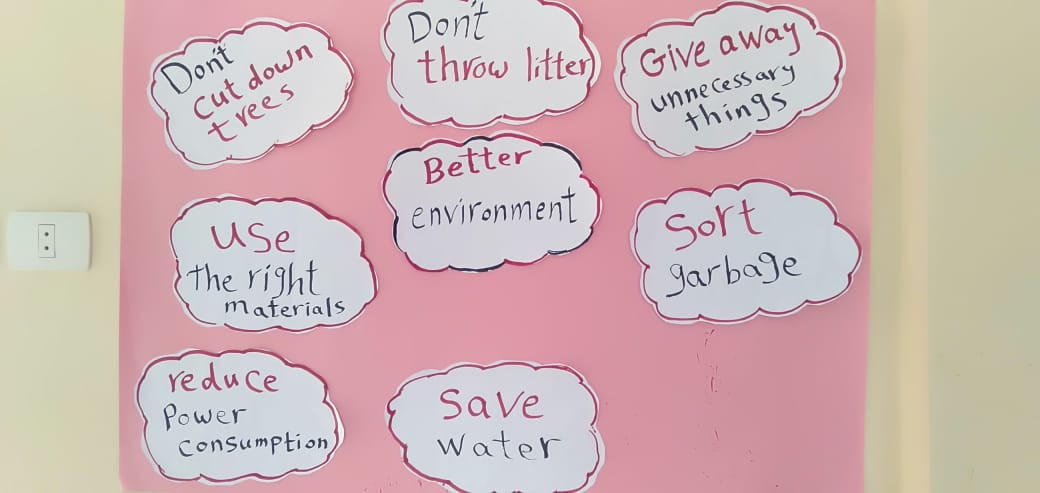 Don't
cut down
trees
Don't
throw litter
Give away
unnecessary
things
Better
environment
use
the right
materials
Sort
garbage
reduce
Power
consumption
Save
water